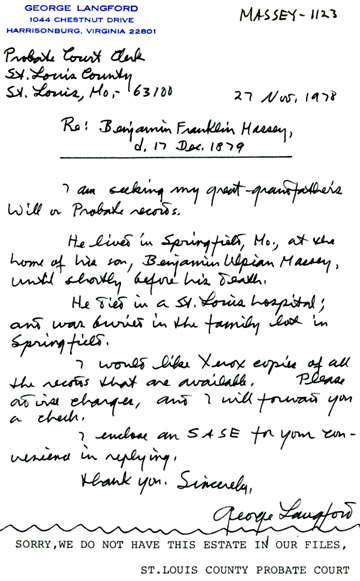 GEORGE LANGFORD
1044 CHESTNUT DRIVE
HARRISONBURG, VIRGINIA 22801
MASSEY-1123
Probate Court Clerk
St. Louis County
St. Louis, Mo,- 63100
27 Nov. 1978
Re: Benjamin Franklin Massey,
d. 17 Dec. 1879
I am seeking my great-grandfather's
Will or Probate records.
He lived in Springfield, Mo., at the
home of his son, Benjamin Ulpian Massey,
until shortly before his death.
He died in a St. Louis hospital;
and was buried in the family lot in
Springfield.
I would like Xerox copies of all
the records that are available. Please
advise charges, and I will forward you
a check.
I enclose an SASE for your con-
venience in replying.
Thank you. Sincerely,
George Langford
SORRY, WE DO NOT HAVE THIS ESTATE IN OUR FILES,
ST.LOUIS COUNTY PROBATE COURT